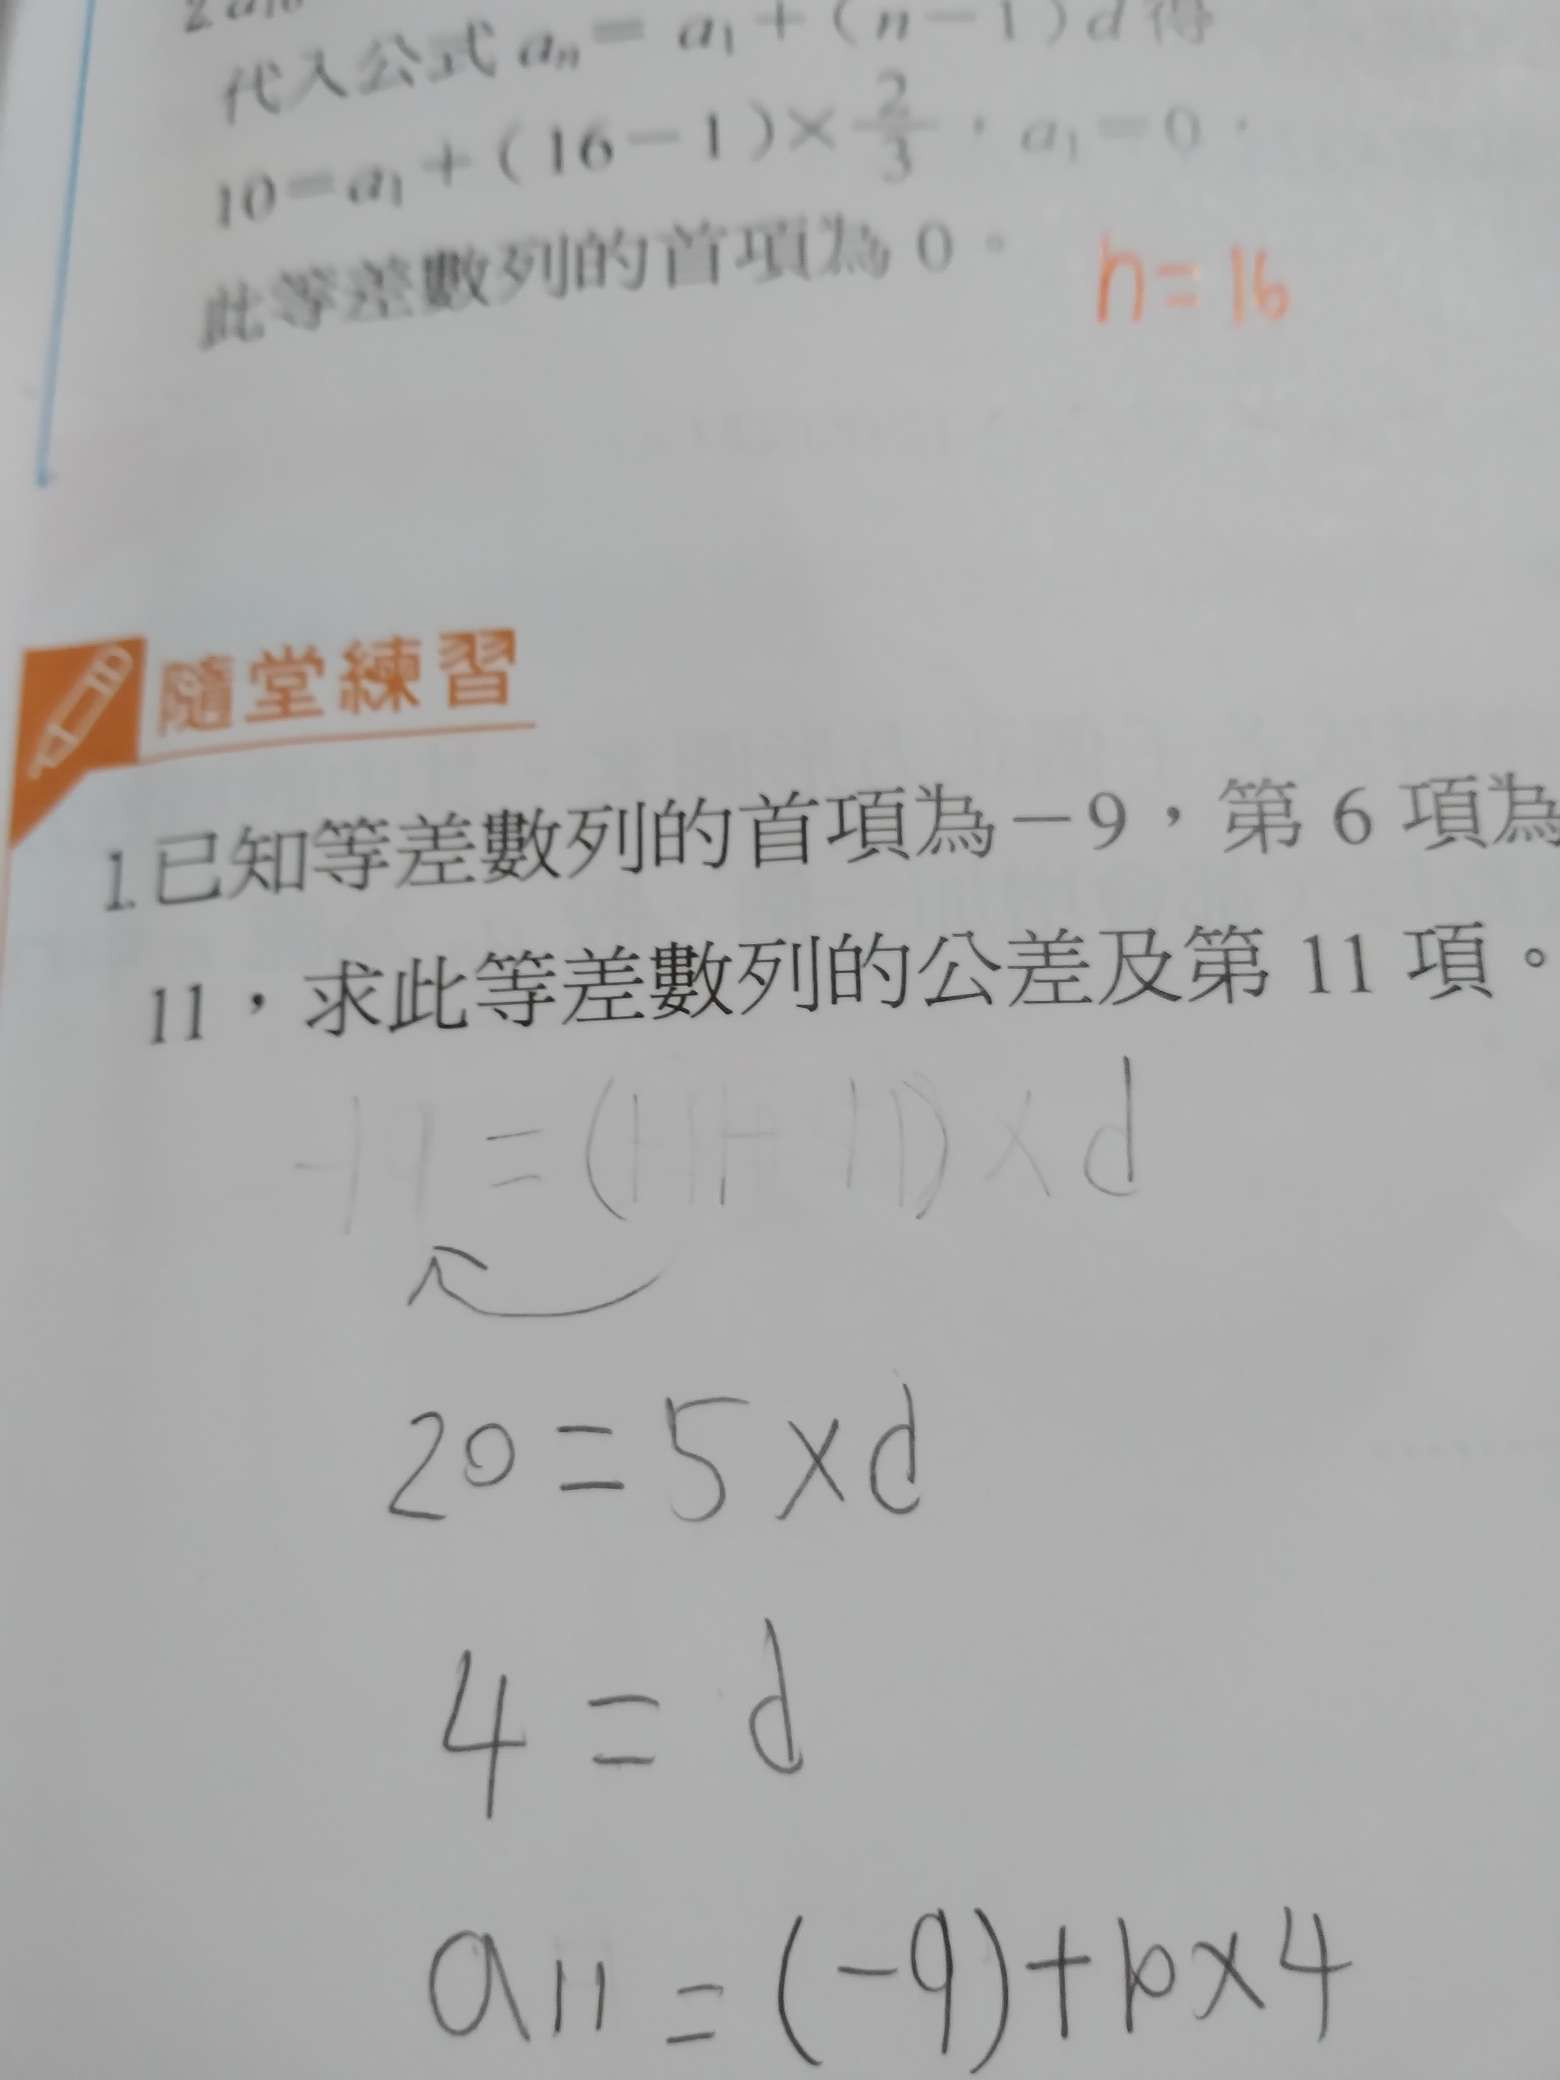 代入公式 aₙ = a₁ + (n－1)d 得
10 = a₁ + (16－1) × 2/3，a₁ = 0。
此等差數列的首項為 0。
n = 16
隨堂練習
1.已知等差數列的首項為－9，第 6 項為
11，求此等差數列的公差及第 11 項。
20 = 5 × d
4 = d
a11 = (-9) + 10 × 4